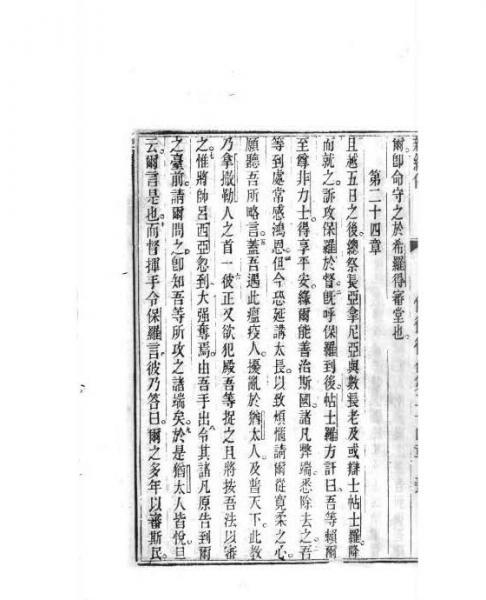 爾卽命守之於希羅得審堂也
第二十四章
且越五日之後總祭長亞拿尼亞與數長老及或辯士帖士羅降
而就之訴攻保羅於督旣呼保羅到後帖士羅方訐曰吾等賴爾
至尊非力士得享平安緣爾能善治斯國諸凡弊端悉除去之吾
等到處常感鴻恩但今恐延講太長以致煩惱請爾從寬柔之心
願聽吾所略言蓋吾遇此瘟疫人擾亂於猶太人及普天下此教
乃拿撒勒人之首一彼正又欲犯殿吾等捉之且將按吾法以審
之惟將帥呂西亞忽到大强奪焉由吾手出令其諸凡原告到爾
之臺前請爾問之卽知吾等所攻之諸端矣於是猶太人皆悅且
云爾言是也而督揮手令保羅言彼乃答曰爾之多年以審斯民